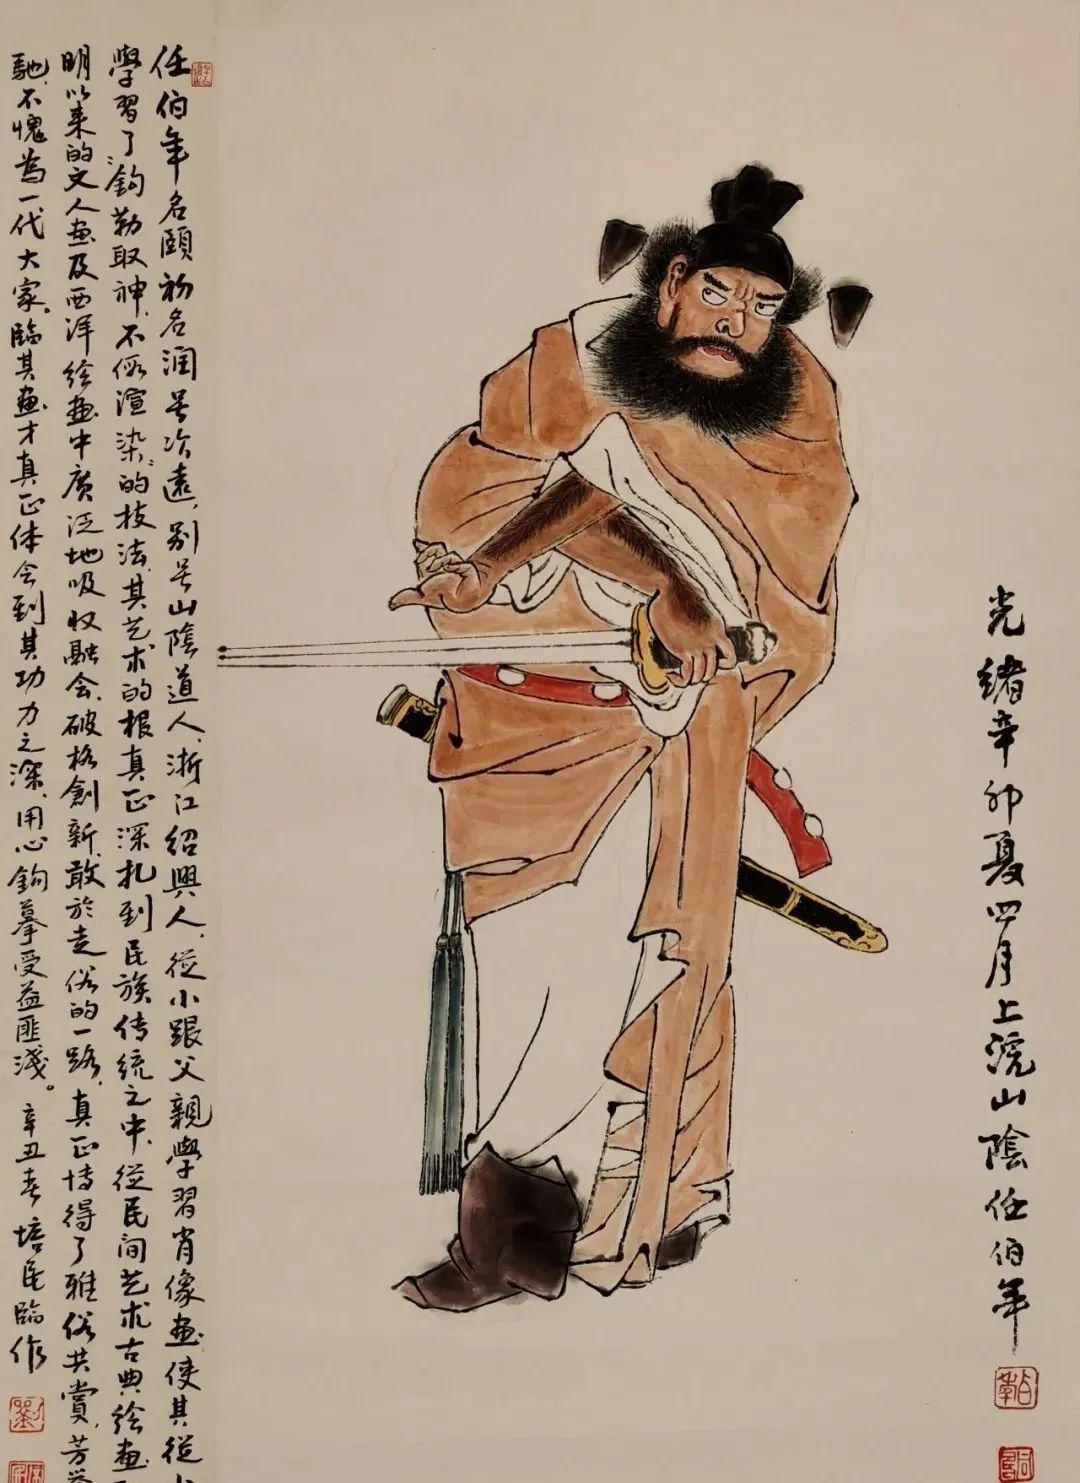 光緒辛卯夏四月上浣山陰任伯年
任伯年名頤初名潤号次遠，别号山陰道人，浙江绍興人，從小跟父親學習肖像画使其從
學習了“鈎勒取神，不假渲染”的技法，其艺术的根真正深扎到民族传统之中，從民间艺术古典绘画
明以来的文人画及西洋绘画中廣泛地吸收融会，破格創新，敢於走俗的一路，真正博得了雅俗共賞，芳
馳，不愧為一代大家。臨其画才真正体会到其功力之深，用心鈎摹受益匪淺。辛丑春培民臨作